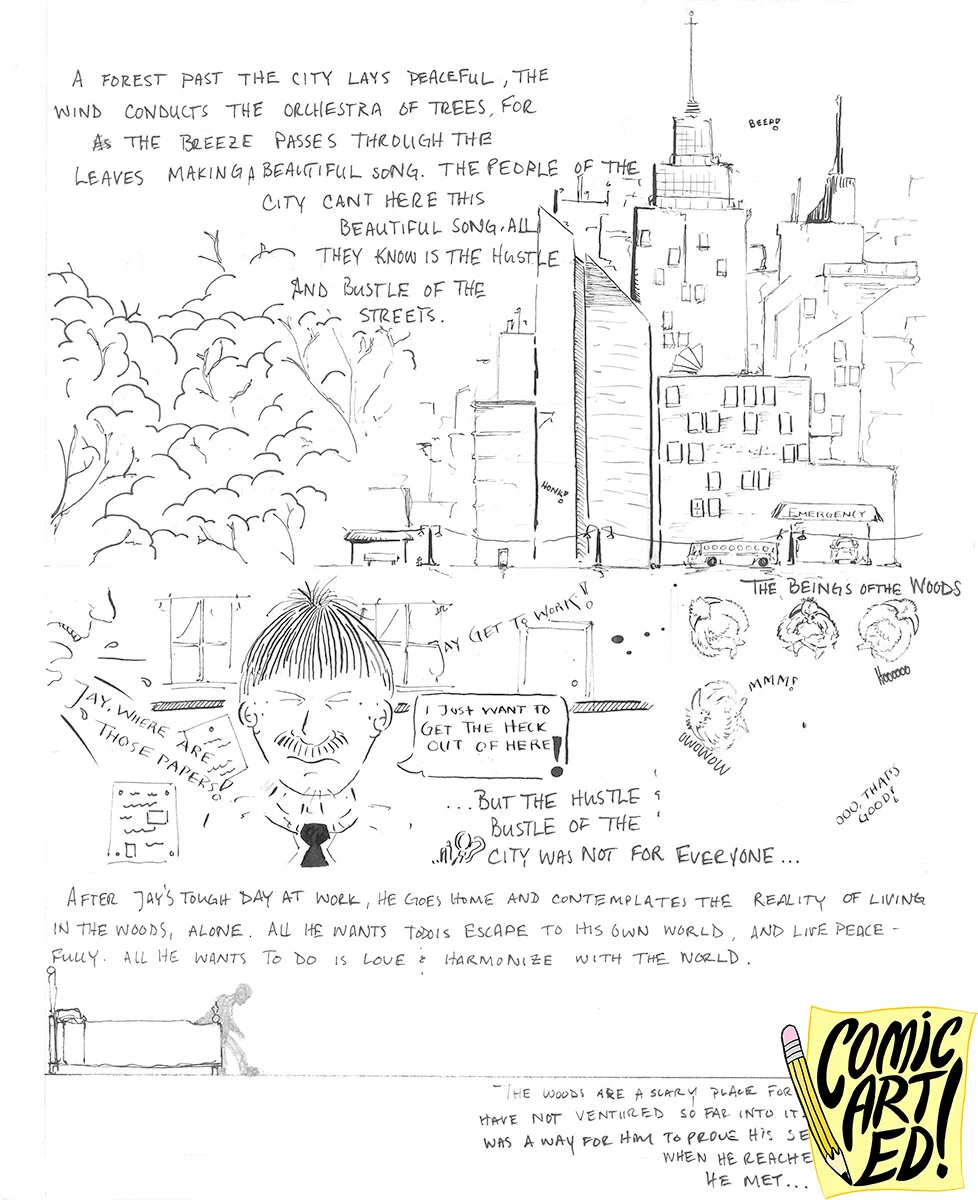 A FOREST PAST THE CITY LAYS PEACEFUL, THE
WIND CONDUCTS THE ORCHESTRA OF TREES, FOR
AS THE BREEZE PASSES THROUGH THE
LEAVES MAKING A BEAUTIFUL SONG. THE PEOPLE OF THE
CITY CANT HERE THIS
BEAUTIFUL SONG, ALL
THEY KNOW IS THE HUSTLE
AND BUSTLE OF THE
STREETS.
BEEP!
HONK!
EMERGENCY
JAY GET TO WORK!
JAY, WHERE ARE
THOSE PAPERS!
I JUST WANT TO
GET THE HECK
OUT OF HERE!
...BUT THE HUSTLE &
BUSTLE OF THE
CITY WAS NOT FOR EVERYONE...
THE BEINGS OF THE WOODS
HOOOOOO
MMM!
OWOWOW
OOO, THAT'S
GOOD!
AFTER JAY'S TOUGH DAY AT WORK, HE GOES HOME AND CONTEMPLATES THE REALITY OF LIVING
IN THE WOODS, ALONE. ALL HE WANTS TO DO IS ESCAPE TO HIS OWN WORLD, AND LIVE PEACE-
FULLY. ALL HE WANTS TO DO IS LOVE & HARMONIZE WITH THE WORLD.
THE WOODS ARE A SCARY PLACE FOR
HAVE NOT VENTURED SO FAR INTO IT.
WAS A WAY FOR HAM TO PROVE HIS SE
WHEN HE REACHE
HE MET...
COMIC
ART
ED!